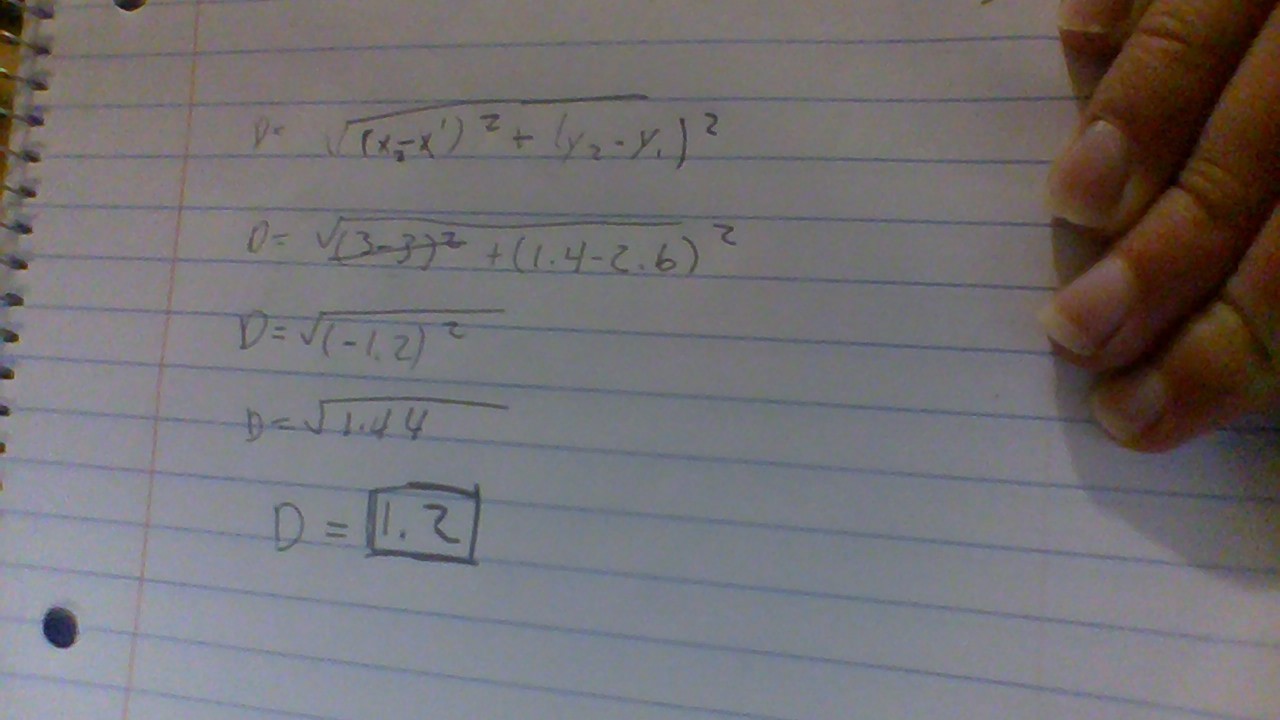 D = √(x₂-x')² + (y₂-y₁)²
D = √(3-3)² + (1.4-2.6)²
D = √(-1.2)²
D = √1.44
D = 1.2